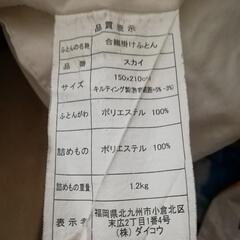 品質表示
ふとんの名称 合繊掛けふとん
品番 スカイ
サイズ 150×210cm
キルティング製(許容範囲+5% -3%)
ふとんがわ ポリエステル 100%
詰めもの ポリエステル 100%
詰めもの重量 1.2kg
表示者 福岡県北九州市小倉北区
末広2丁目1番4号
(株)ダイコウ